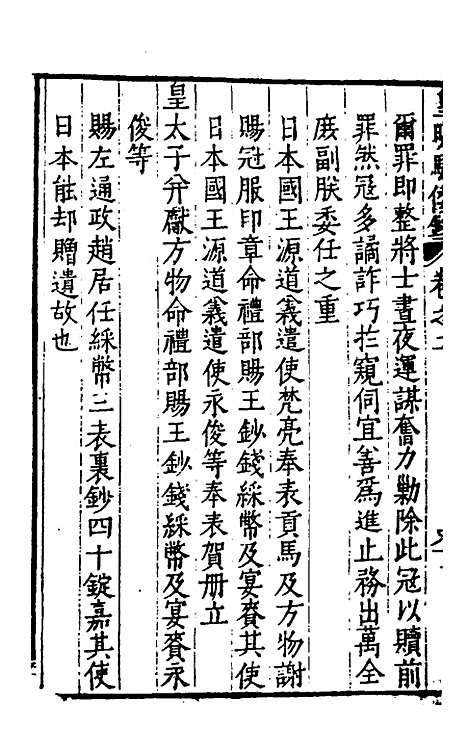 爾罪即整將士晝夜運謀奮力勦除此冦以贖前
罪然冦多譎詐巧扵窺伺宜善爲進止務出萬全
庻副朕委任之重
日本國王源道義遣使梵亮奉表貢馬及方物謝
賜冠服印章命禮部賜王鈔錢綵幣及宴賚其使
日本國王源道義遣使永俊等奉表賀册立
皇太子并獻方物命禮部賜王鈔錢綵幣及宴賚永
俊等
賜左通政趙居任綵幣三表裏鈔四十錠嘉其使
日本能却贈遺故也